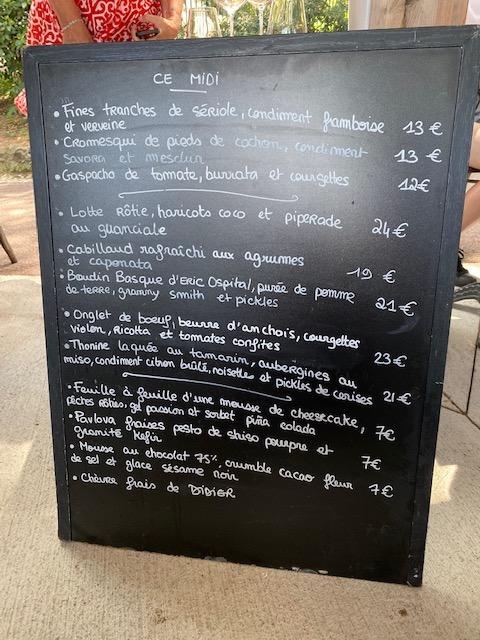 CE MIDI
• Fines tranches de sériole, condiment framboise
et verveine 13 €
• Cromesqui de pieds de cochon, condiment
savora et mesclun 13 €
• Gaspacho de tomate, burrata et courgettes 12€
• Lotte Rôtie, haricots coco et piperade
au guanciale 24 €
• Cabillaud rafraîchi aux agrumes
et caponata 19 €
• Boudin Basque d'Eric Ospital, purée de pomme
de terre, granny smith et pickles 21 €
• Onglet de boeuf, beurre d'anchois, courgettes
violon, Ricotta et tomates confites 23 €
• Thonine laquée au tamarin, aubergines au
miso, condiment citron brûlé, noisettes et pickles de cerises 21 €
• Feuille à feuille d'une mousse de cheesecake,
pêches rôties, gel passion et sorbet piña colada 7€
• Pavlova fraises pesto de shiso pourpre et
granité kéfir 7€
• Mousse au chocolat 75%, crumble cacao fleur
de sel et glace sésame noir 7€
• Chèvre frais de DIDIER